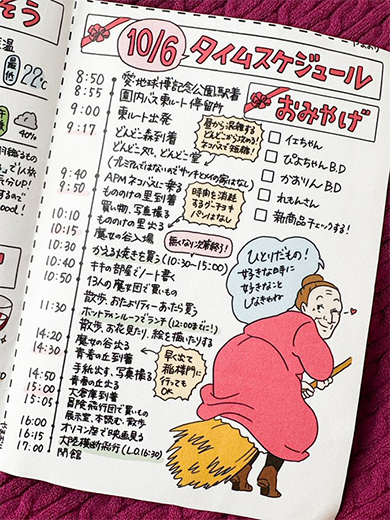 10/6 タイムスケジュール
8:50 愛・地球博記念公園駅着
8:55 園内バス東ルート停留所
9:00 東ルート出発
9:17 どんどこ森到着
どんどこ処、どんどこ堂
昼から混雑する
どんどこから攻める!
ネコバスで短縮!
9:40 APMネコバスに乗る
9:50 もののけの里到着
買い物、写真撮る
10:10 もののけの里出る
時間を消耗
するグーチョキ
パンはなし
10:15 魔女の谷入場
無くなり次第終了!
10:30 かえる焼きを買う(10:30〜15:00)
10:40 キキの部屋でノート書く
10:50 13人の魔女団で買いもの
散歩、おたよりティーあたら買う
11:30 ホットティンルーフランチ(12:00までに!)
散歩、お花見たり、絵を描いたりする
14:20 魔女の谷出る
14:30 青春の丘到着
手紙出す、写真撮る
14:50 青春の丘出る
早く出て
稲楼門に
行っても
OK
15:00 大倉庫到着
15:05 冒険飛行団で買いもの
展示室、本読む、散歩
16:00 オリヲン座で映画見る
16:15 大陸横断飛行(L.O.16:30)
17:00 閉館
おみやげ
イエちゃん
ぴよちゃんB.D
かおりんB.D
れもんさん
新商品チェックする!
ひとりだもの!
好きな時に
好きなこと
しなきゃね
そう
気温
最低
22℃
40%